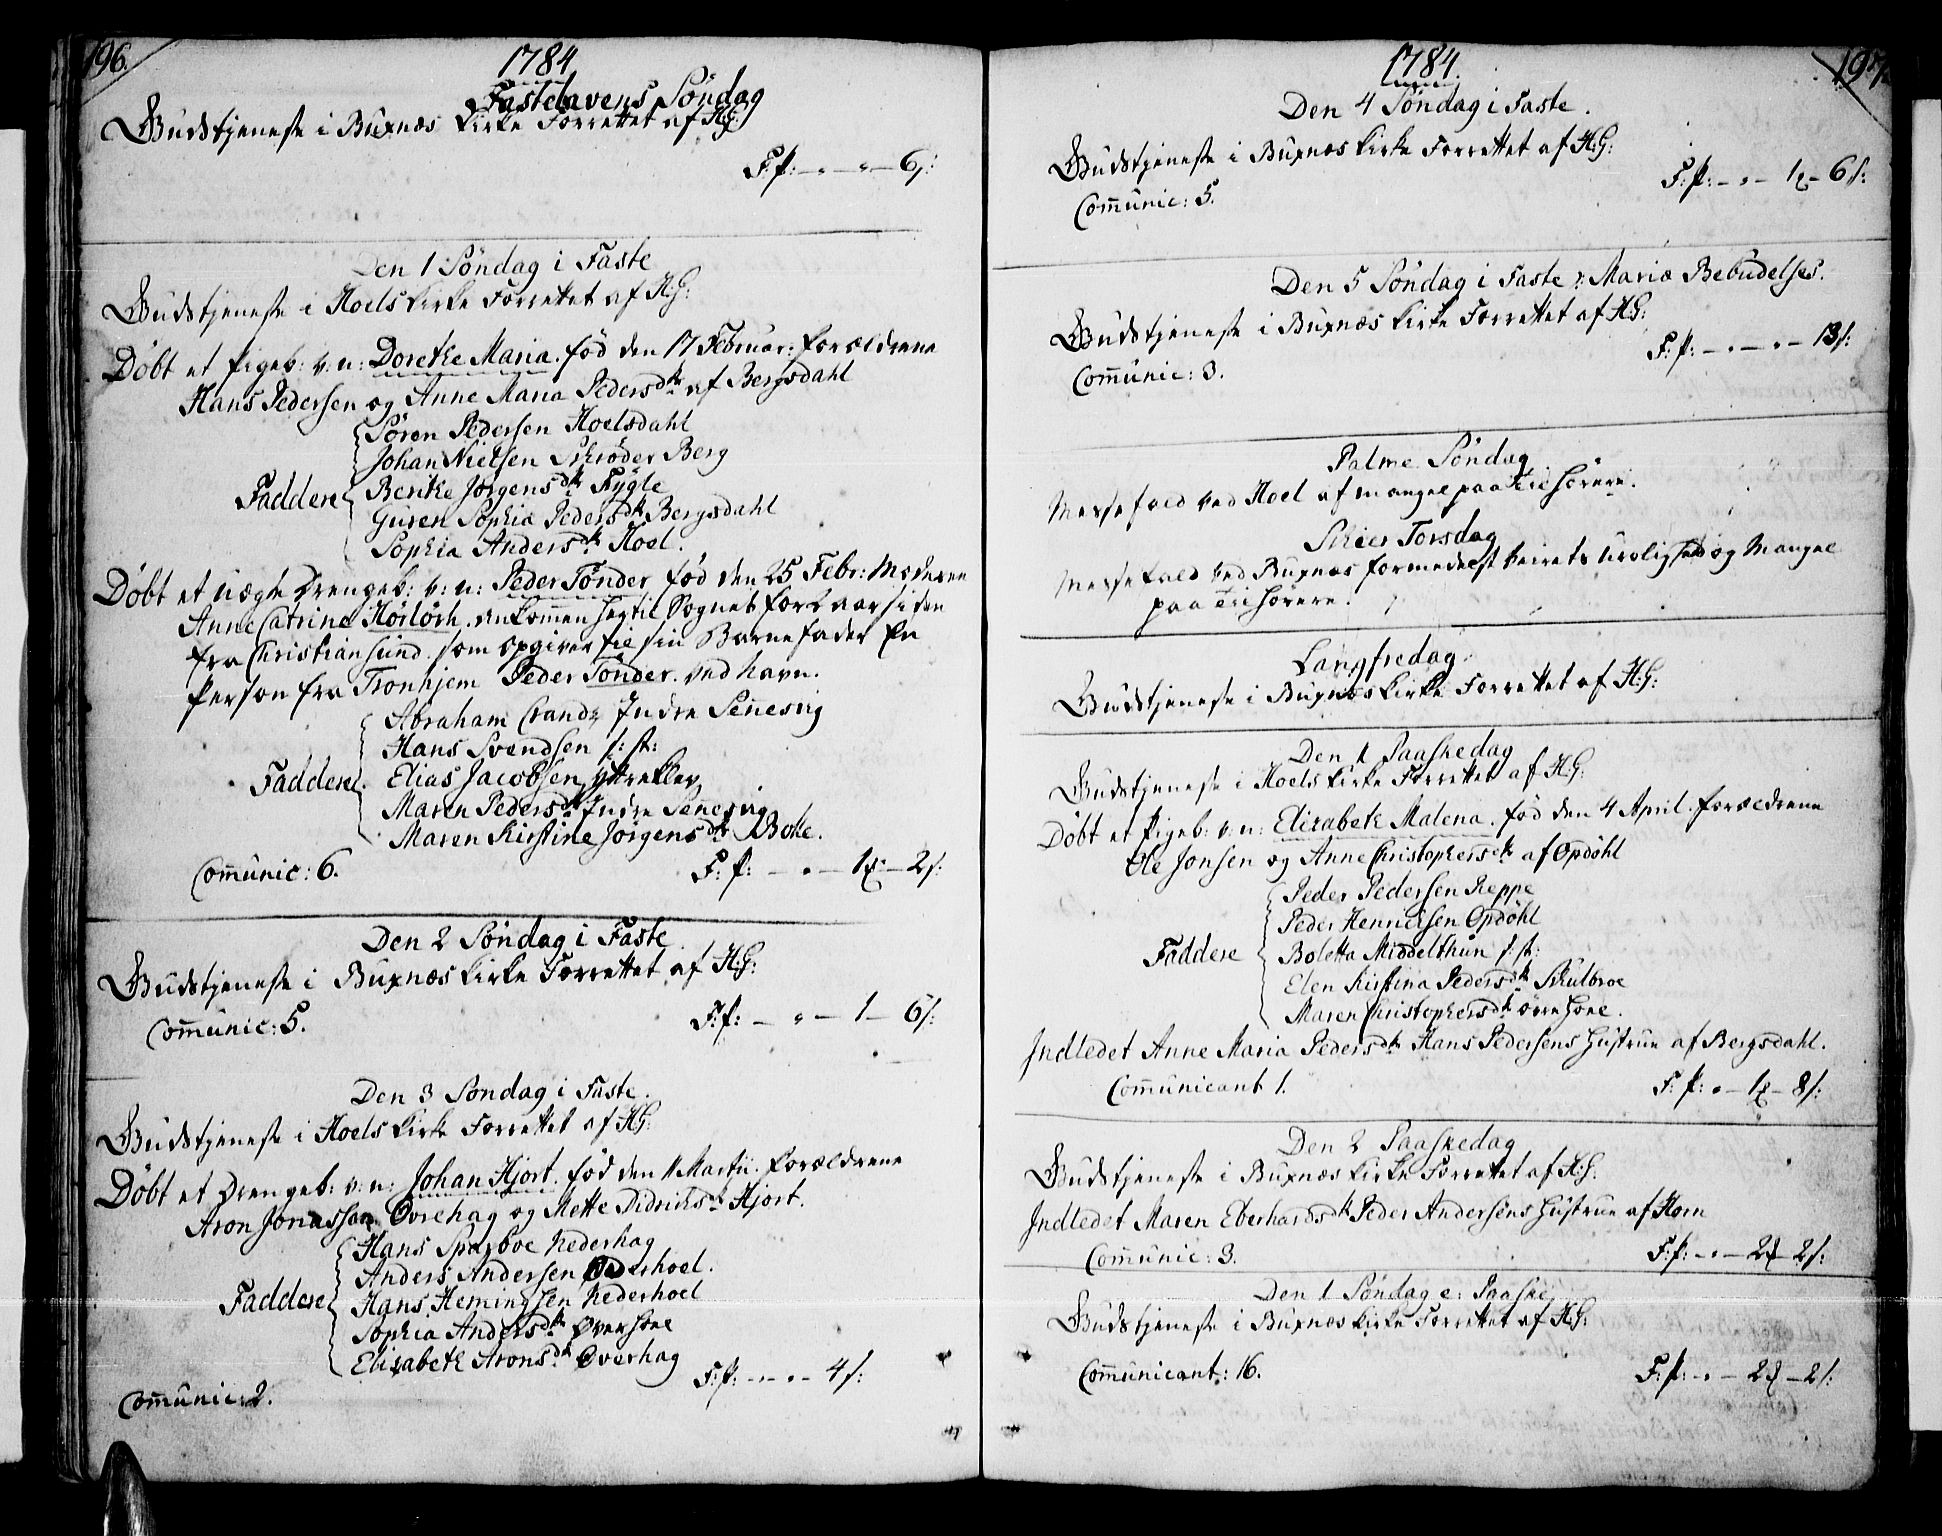 196.
1784
Fastelavens Söndag
Gudstjeneste i Buxnæs Kirke Forrettet af H:G:
F: f: — „ — „ — 6 s:
Den 1 Söndag i Faste
Gudstjeneste i Hoels Kirke Forrettet af H:G:
Döbt et Pigeb: v: n: Dorethe Maria. fød den 17 Februar: Forældrene
Hans Pedersen og Anne Maria Pedersdtr af Bergsdahl
Sören Pedersen Hoelsdahl
Johan Nielsen Schröder Berg
Faddere Benthe Jörgensdtr Fygle
Guren Sophia Pedersdtr Bergsdahl
Sophia Andersdtr Hoel.
Döbt et uægte Drengeb: v: n: Peder Tönder fød den 25 Febr: Moderen
Anne Catrine, ankommen hertil Sognet forl: Aar siden
fra Christiansund. som opgiver til sin Barnefader En
Person fra Tronhjem Peder Tönder. ved Navn.
Abraham Crandz Indre Senesvig
Hans Svendsen s: st:
Faddere Elias Jacobsen Yttreklev
Maren Pedersdtr Indre Senesvig
Maren Kirstine Jörgensdtr Bolle.
Communic: 6.
F: f: — „ — 1 — 2 s:
Den 2 Söndag i Faste
Gudstjeneste i Buxnæs Kirke Forrettet af H:G:
Communic: 5.
F: f: — „ — 1 — 6 s:
Den 3 Söndag i Faste.
Gudstjeneste i Hoels Kirke Forrettet af H:G:
Döbt et Drengeb: v: n: Johan Hjort. fød den 11 Martii. Forældrene
Aron Jonassen Øvrehag og Mette Didrichsdtr Hjort.
Hans Sparboe Nederhag
Anders Andersen hoel.
Faddere Hans Hemingsen Nederhoel
Sophia Andersdtr Øverhoel
Elizabeth Aronsdtr Øverhag
F: f: — „ — „ — 4 s:
Communic: 2.
1784.
197.
Den 4 Söndag i Faste.
Gudstjeneste i Buxnæs Kirke Forrettet af H:G:
F: f: — „ — 1 — 6 s:
Communic: 5.
Den 5 Söndag i Faste : Mariæ Bebudelses.
Gudstjeneste i Buxnæs Kirke Forrettet af H:G:
F: f: — „ — „ — 13 s:
Communic: 3.
Palme Söndag
Messefald ved Hoel af Mangel paa Tilhörere.
Skier Torsdag
Messefald ved Buxnæs formedelst Veirets Urolighed og Mangel
paa Tilhörere.
Langfredag.
Gudstjeneste i Buxnæs Kirke Forrettet af H:G:
Den 1 Paaskedag
Gudstjeneste i Hoels Kirke Forrettet af H:G:
Döbt et Pigeb: v: n: Elizabeth Malena. fød den 4 April. Forældrene
Ole Jonsen og Anne Christophersdtr af Opdöhl
Peder Pedersen Reppe
Peder Henricksen Opdöhl
Faddere Boletta Middelthun s: st:
Elen Kirstina Pedersdtr Skulbroe
Maren Christophersdtr
Indledet Anne Maria Pedersdtr Hans Pedersens Hustrue af Bergsdahl.
Communicant 1.
F: f: „ — 1 — 8 s:
Den 2 Paaskedag
Gudstjeneste i Buxnæs Kirke Forrettet af H:G:
Indledet Maren Eberhardsdtr Peder Andersens Hustrue af Horn
Communic: 3.
F: f: — „ — 2 — 2 s:
Den 1 Söndag e: Paaske
Gudstjeneste i Buxnæs Kirke Forrettet af H:G:
Communicant: 16.
F: f: — „ — 2 — 2 s: